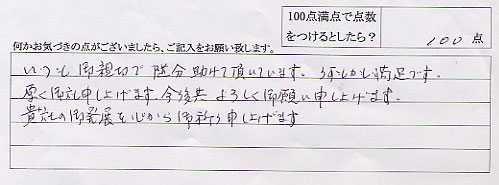 100点満点で点数
をつけるとしたら?
100 点
何かお気づきの点がございましたら、ご記入をお願い致します。
いつも御親切で随分助けて頂いています。 満足です。
厚く御礼申し上げます。今後共よろしく御願い申し上げます。
貴社の御発展を心から御祈り申し上げます